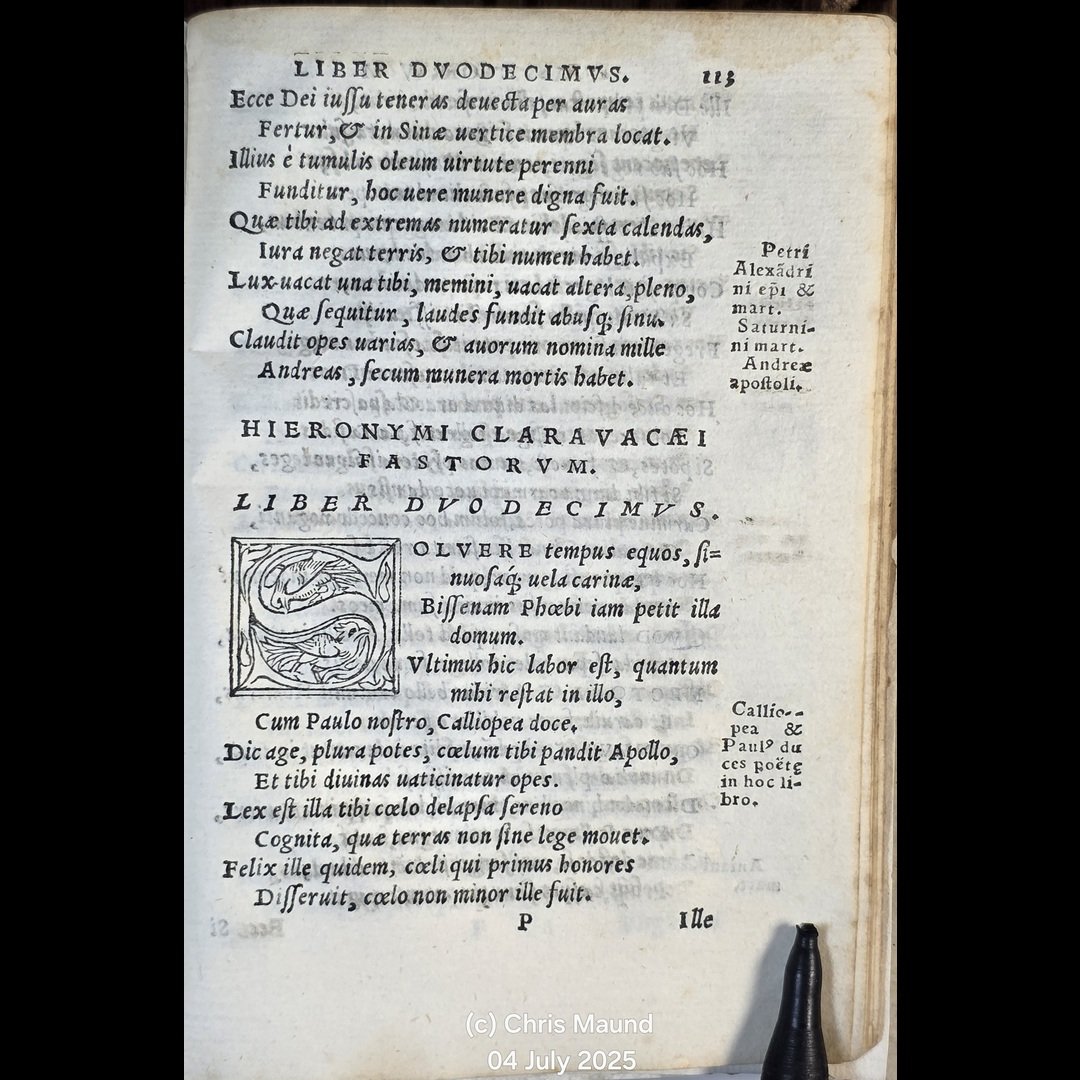 LIBER DVODECIMVS. 113
Ecce Dei iuſſu teneras deuecta per auras
Fertur, & in Sinæ uertice membra locat.
Illius è tumulis oleum uirtute perenni
Funditur, hoc uere munere digna fuit.
Quæ tibi ad extremas numeratur ſexta calendas,
Iura negat terris, & tibi numen habet.
Lux uacat una tibi, memini, uacat altera, pleno,
Quæ ſequitur, laudes fundit abuſq; ſinu.
Claudit opes uarias, & auorum nomina mille
Andreas, ſecum munera mortis habet.
Petri
Alexãdri
ni ep̃i &
mart.
Saturni-
ni mart.
Andreæ
apoſtoli.
HIERONYMI CLARAVACÆI
FASTORVM.
LIBER DVODECIMVS.
SOLVERE tempus equos, ſi=
nuoſaq́; uela carinæ,
Biſſenam Phœbi iam petit illa
domum.
Vltimus hic labor eſt, quantum
mihi reſtat in illo,
Cum Paulo noſtro, Calliopea doce.
Dic age, plura potes, cœlum tibi pandit Apollo,
Et tibi diuinas uaticinatur opes.
Lex eſt illa tibi cœlo delapſa ſereno
Cognita, quæ terras non ſine lege mouet.
Felix ille quidem, cœli qui primus honores
Diſſeruit, cœlo non minor ille fuit.
Callio-
pea &
Paulꝰ du
ces poëtę
in hoc li-
bro.
P Ille
(c) Chris Maund
04 July 2025